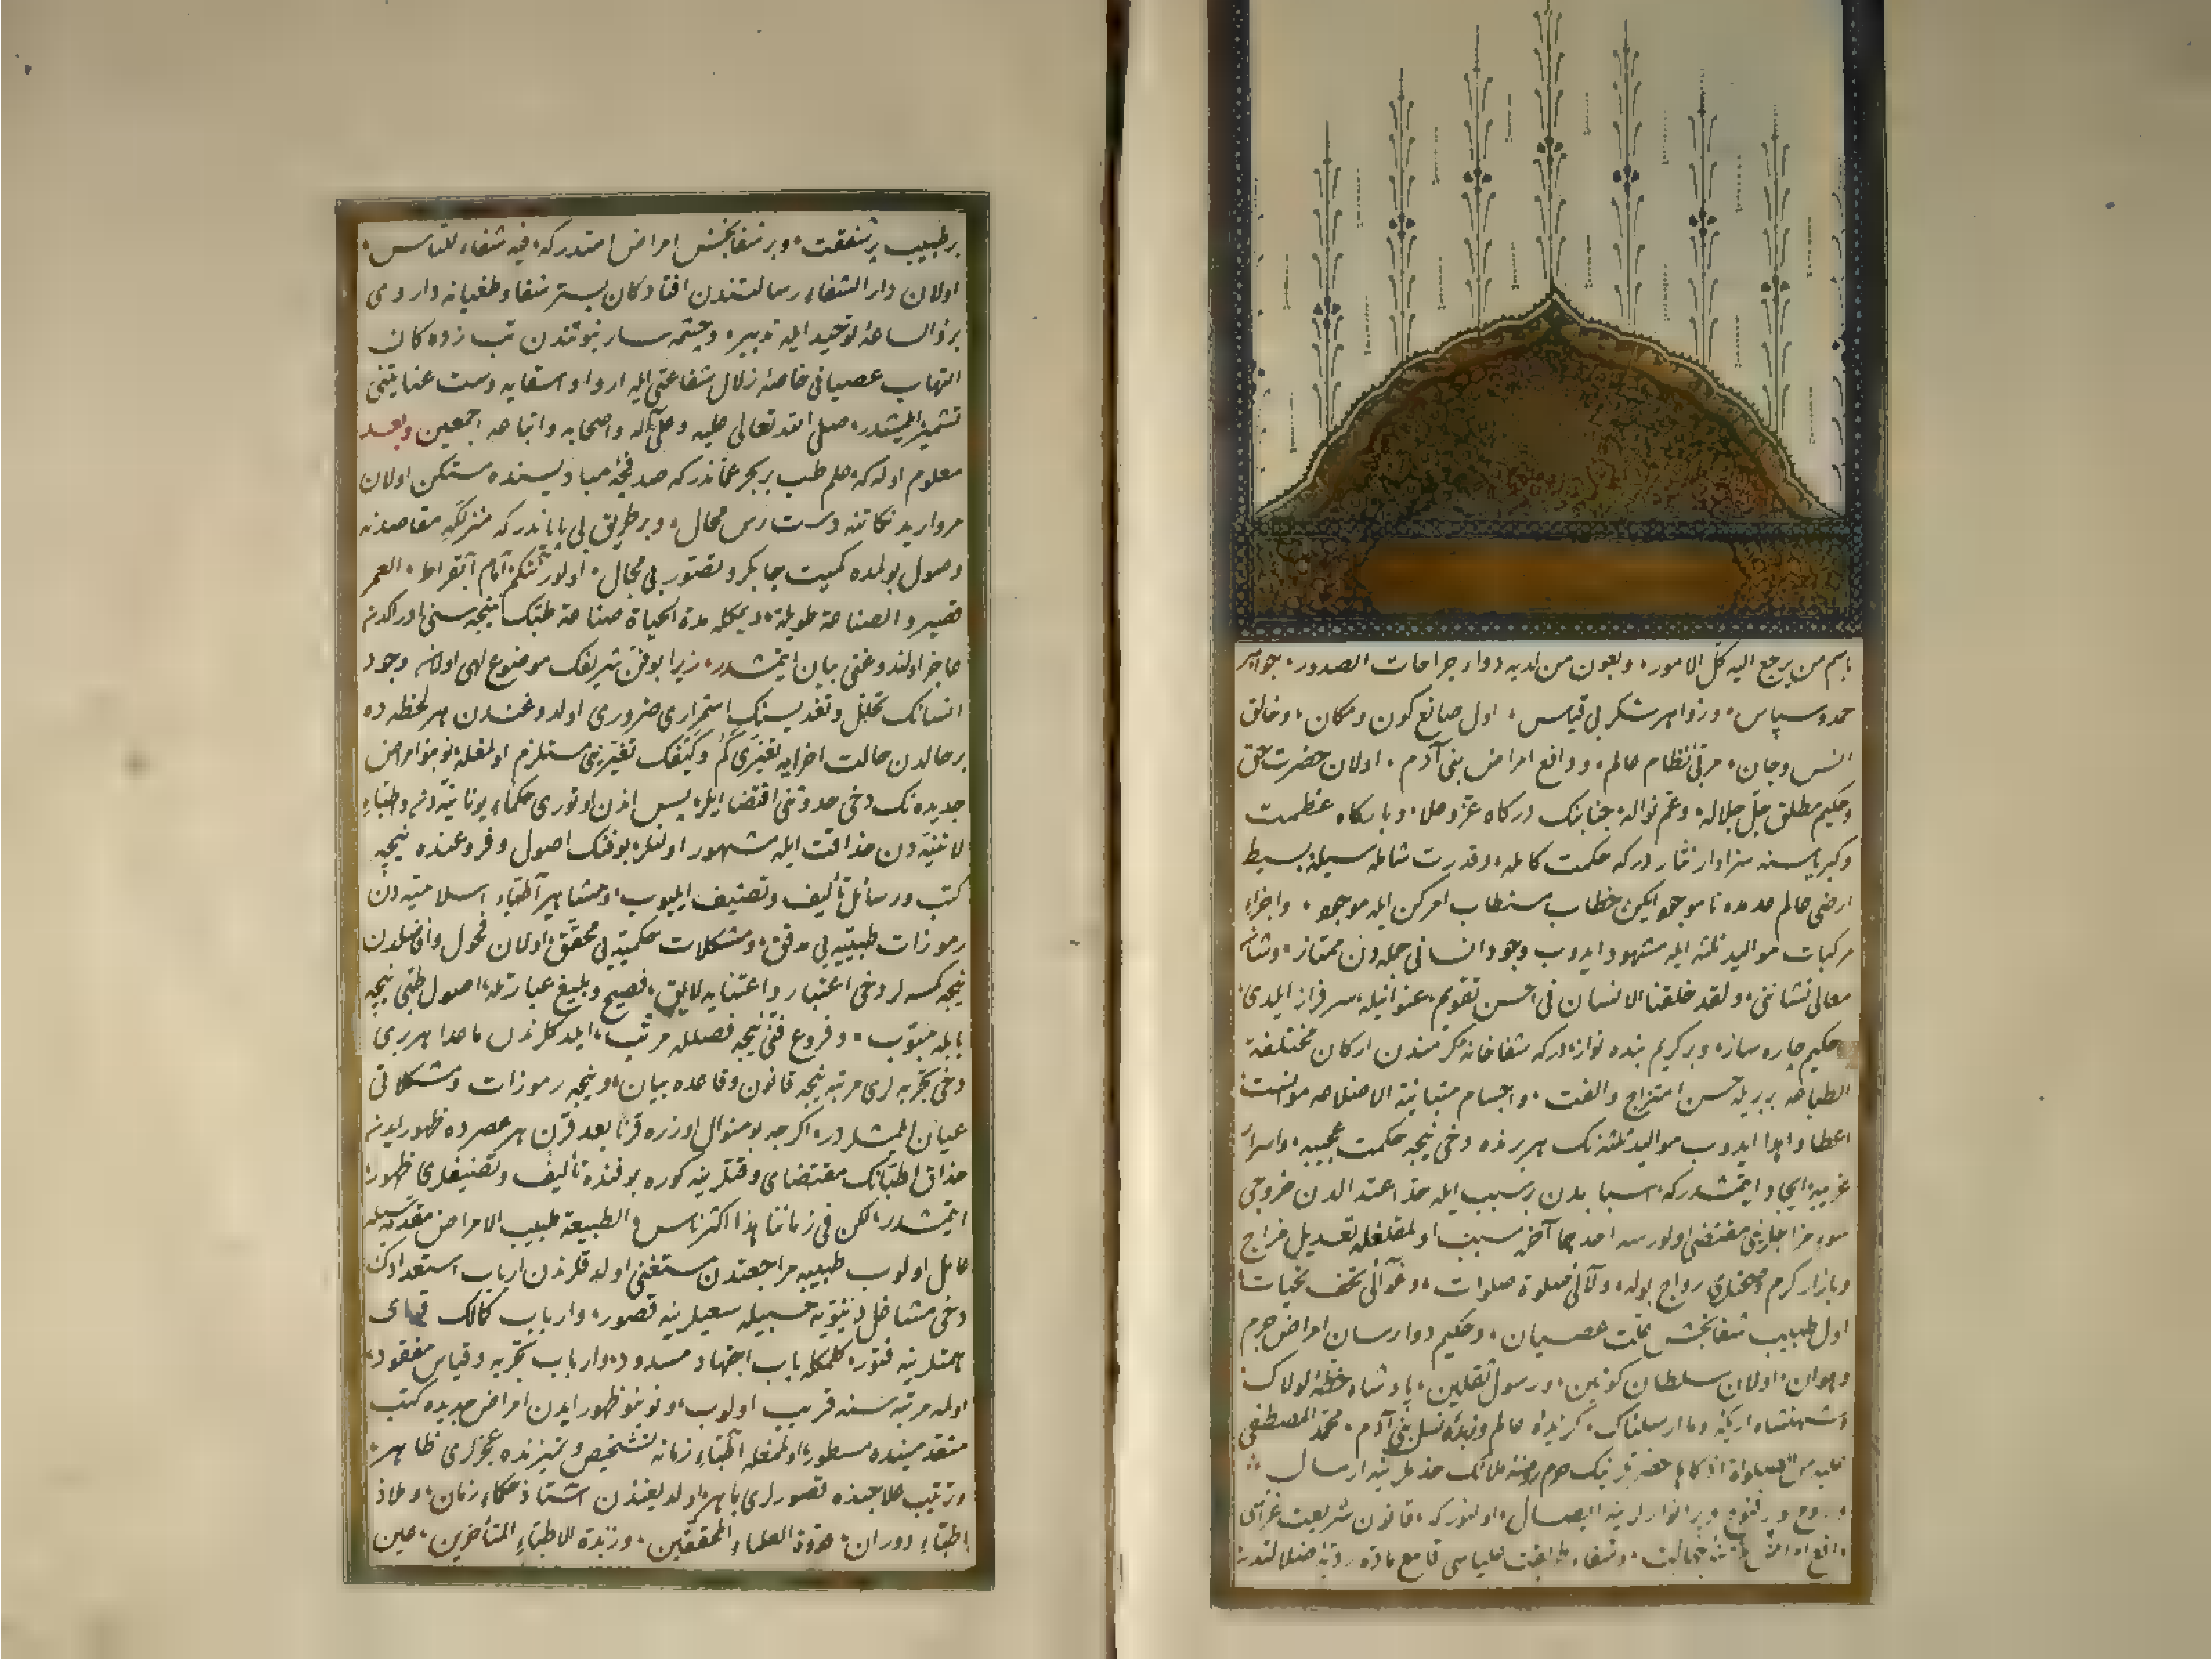 باسم من يرجع اليه كل الامور، وبعون من لديه دواء جراحات الصدور، جواهر
حمد وسپاس، وزواهر شكر بی قیاس، اول صانع كون ومكان، وخالق
انس وجان، مربی نظام عالم، ودافع امراض بنی آدم، اولان حضرت حق
وحكيم مطلق جل جلاله، وعم نواله، جنابنك درگاه عز وعلا، وبارگاه عظمت
وكبریاسنه سزاوار نثار دركه حكمت كامله، وقدرت شامله سیله بسیط
ارضی عالم عدمده ناموجو ایكن خطاب مستطاب امر كن ایله موجو، واجزاء
مركبات موالید ثلثه ایله مشهود ایدوب وجود انسانی جمله دن ممتاز، وشان
معالی نشاننی، ولقد خلقنا الانسان فی احسن تقویم، عنوانیله سرفراز ایلدی،
حكیم چاره ساز، وبر كریم بنده نوازدركه شفاخانه كرمندن اركان مختلفة
الطباعه بربریله حسن امتزاج والفت، واجسام متباینة الاضلاعه موانست
اعطا واهدا ایدوب موالید ثلثه نك هر برنده دخی نیجه حكمت عجیبه، واسرار
غریبه ایجاد ایتمشدركه اسباب بدن بر سبب ایله حد اعتدالدن خروجی
سوء مزاجلرینی مقتضی اولورسه احدهما آخره سبب اولمقلغله تعدیل مزاج
وبازار كرم رواج بوله، ولآلی صلوة صلوات، وغوالی تحف تحیات
اول طبیب شفابخش علت عصیان، وحكیم دوارسان امراض جرم
وهوان، اولان سلطان كونین، ورسول ثقلین، پادشاه خطهٔ لولاك
وشهنشاه اریكهٔ وما ارسلناك، گزیدهٔ عالم وزبدهٔ نسل بنی آدم، محمد المصطفی
علیه من الصلواة ازكاها حضرتلرینك حرم روضهٔ ملائك خدملرینه ارسال
وروح پر فتوح وپر انوارلرینه ایصال، اولنوركه، قانون شریعت غراسی
دافع امراض جهالت، وشفاء طریقت علیاسی قامع مادهٔ ردیهٔ ضلالتدر
بر طبیب پر شفقت، وبر شفابخش امراض امتدركه، فیه شفاء للناس،
اولان دار الشفاء رسالتندن افتادكان بستر شقا وطغیانه داروی
برء الساعهٔ توحید ایله تدبیر، وچشمه سار نبوتندن تب زده كان
التهاب عصیانی خاصهٔ زلال شفاعتی ایله اروا واسقایه دست عنایتنی
تشمیر ایلمشدر، صلی الله تعالی علیه وعلی آله واصحابه واتباعه اجمعین وبعد
معلوم اوله كه علم طب بر بحر عماندركه صدفچهٔ مبادیسنده مستكن اولان
مروارید نكاتنه دست رس محال، وبر طریق بی پایاندركه منزلگه مقاصدنه
وصول بولمده كمیت چابكرو تصور بی مجال، امام ابقراط، العمر
قصیر والصناعة طویلة، دیمكله مدة الحیاة صناعة طبك نیجه سنی ادراكدن
عاجز اولندوغنی بیان ایتمشدر، زیرا بو فن شریفك موضوع لهی اولان وجود
انسانك تحلیل وتغدیسنك استمراری ضروری اولدوغندن هر لحظه ده
بر حالدن حالت اخرایه تغیری كم وكیفك تغیرینی مستلزم اولمغله نوبنو امراض
جدیده نك دخی حدوثنی اقتضا ایلر، پس اذن اوتوری حكماء یونانیه دن واطباء
لاتینیه دن حذاقت ایله مشهور اولنلر بوفنك اصول وفروعنده نیجه
كتب ورسائل تألیف وتصنیف ایلیوب، ومشاهیر اطباء اسلامیه دن
رموزات طبیه یی مدقق، ومشكلات حكمیه یی محقق، اولان فحول وافاضلدن
نیجه كمسه لر دخی اعتبار واعتنایه لایق، فصیح وبلیغ عبارتله، اصول طبی نیجه
بابله مبوب، وفروع فنی نیجه فصللله مرتب، ایلدكلرندن ماعدا هر بری
دخی تجربه لری مرتبه نیجه قانون وقاعده بیان، ونیجه رموزات ومشكلاتی
عیان ایلمشلردر، اكرچه بو منوال اوزره قرنا بعد قرن هر عصرده ظهور ایدن
حذاق اطبانك مقتضای وقتلرینه كوره بو فنده تألیف وتصنیفلری ظهور
ایتمشدر، لكن فی زماننا هذا اكثر ناس والطبیعة طبیب الامراض مقدمه سیله
عامل اولوب طبیبه مراجعتدن مستغنی اولدقلرندن ارباب استعدادك
دخی مشاغل دنیویه حسبیله سعیلرینه قصور، وارباب كمالك تمای
همتلرینه فتور، كلمكله باب اجتهاد مسدود، وارباب تجربه وقیاس مفقود،
اوله مرتبه سنه قریب اولوب، ونوبنو ظهور ایدن امراض جدیده كتب
متقدمینده مسطور، اولمغله اطباء زمانه تشخیص وتمیزنده عجزلری ظاهر
وترتیب علاجنده قصورلری باهر اولدیغندن استاذ حكماء زمان، وملاذ
اطباء دوران، قدوة العلماء المحققین، وزبدة الاطباء المتأخرین، عین